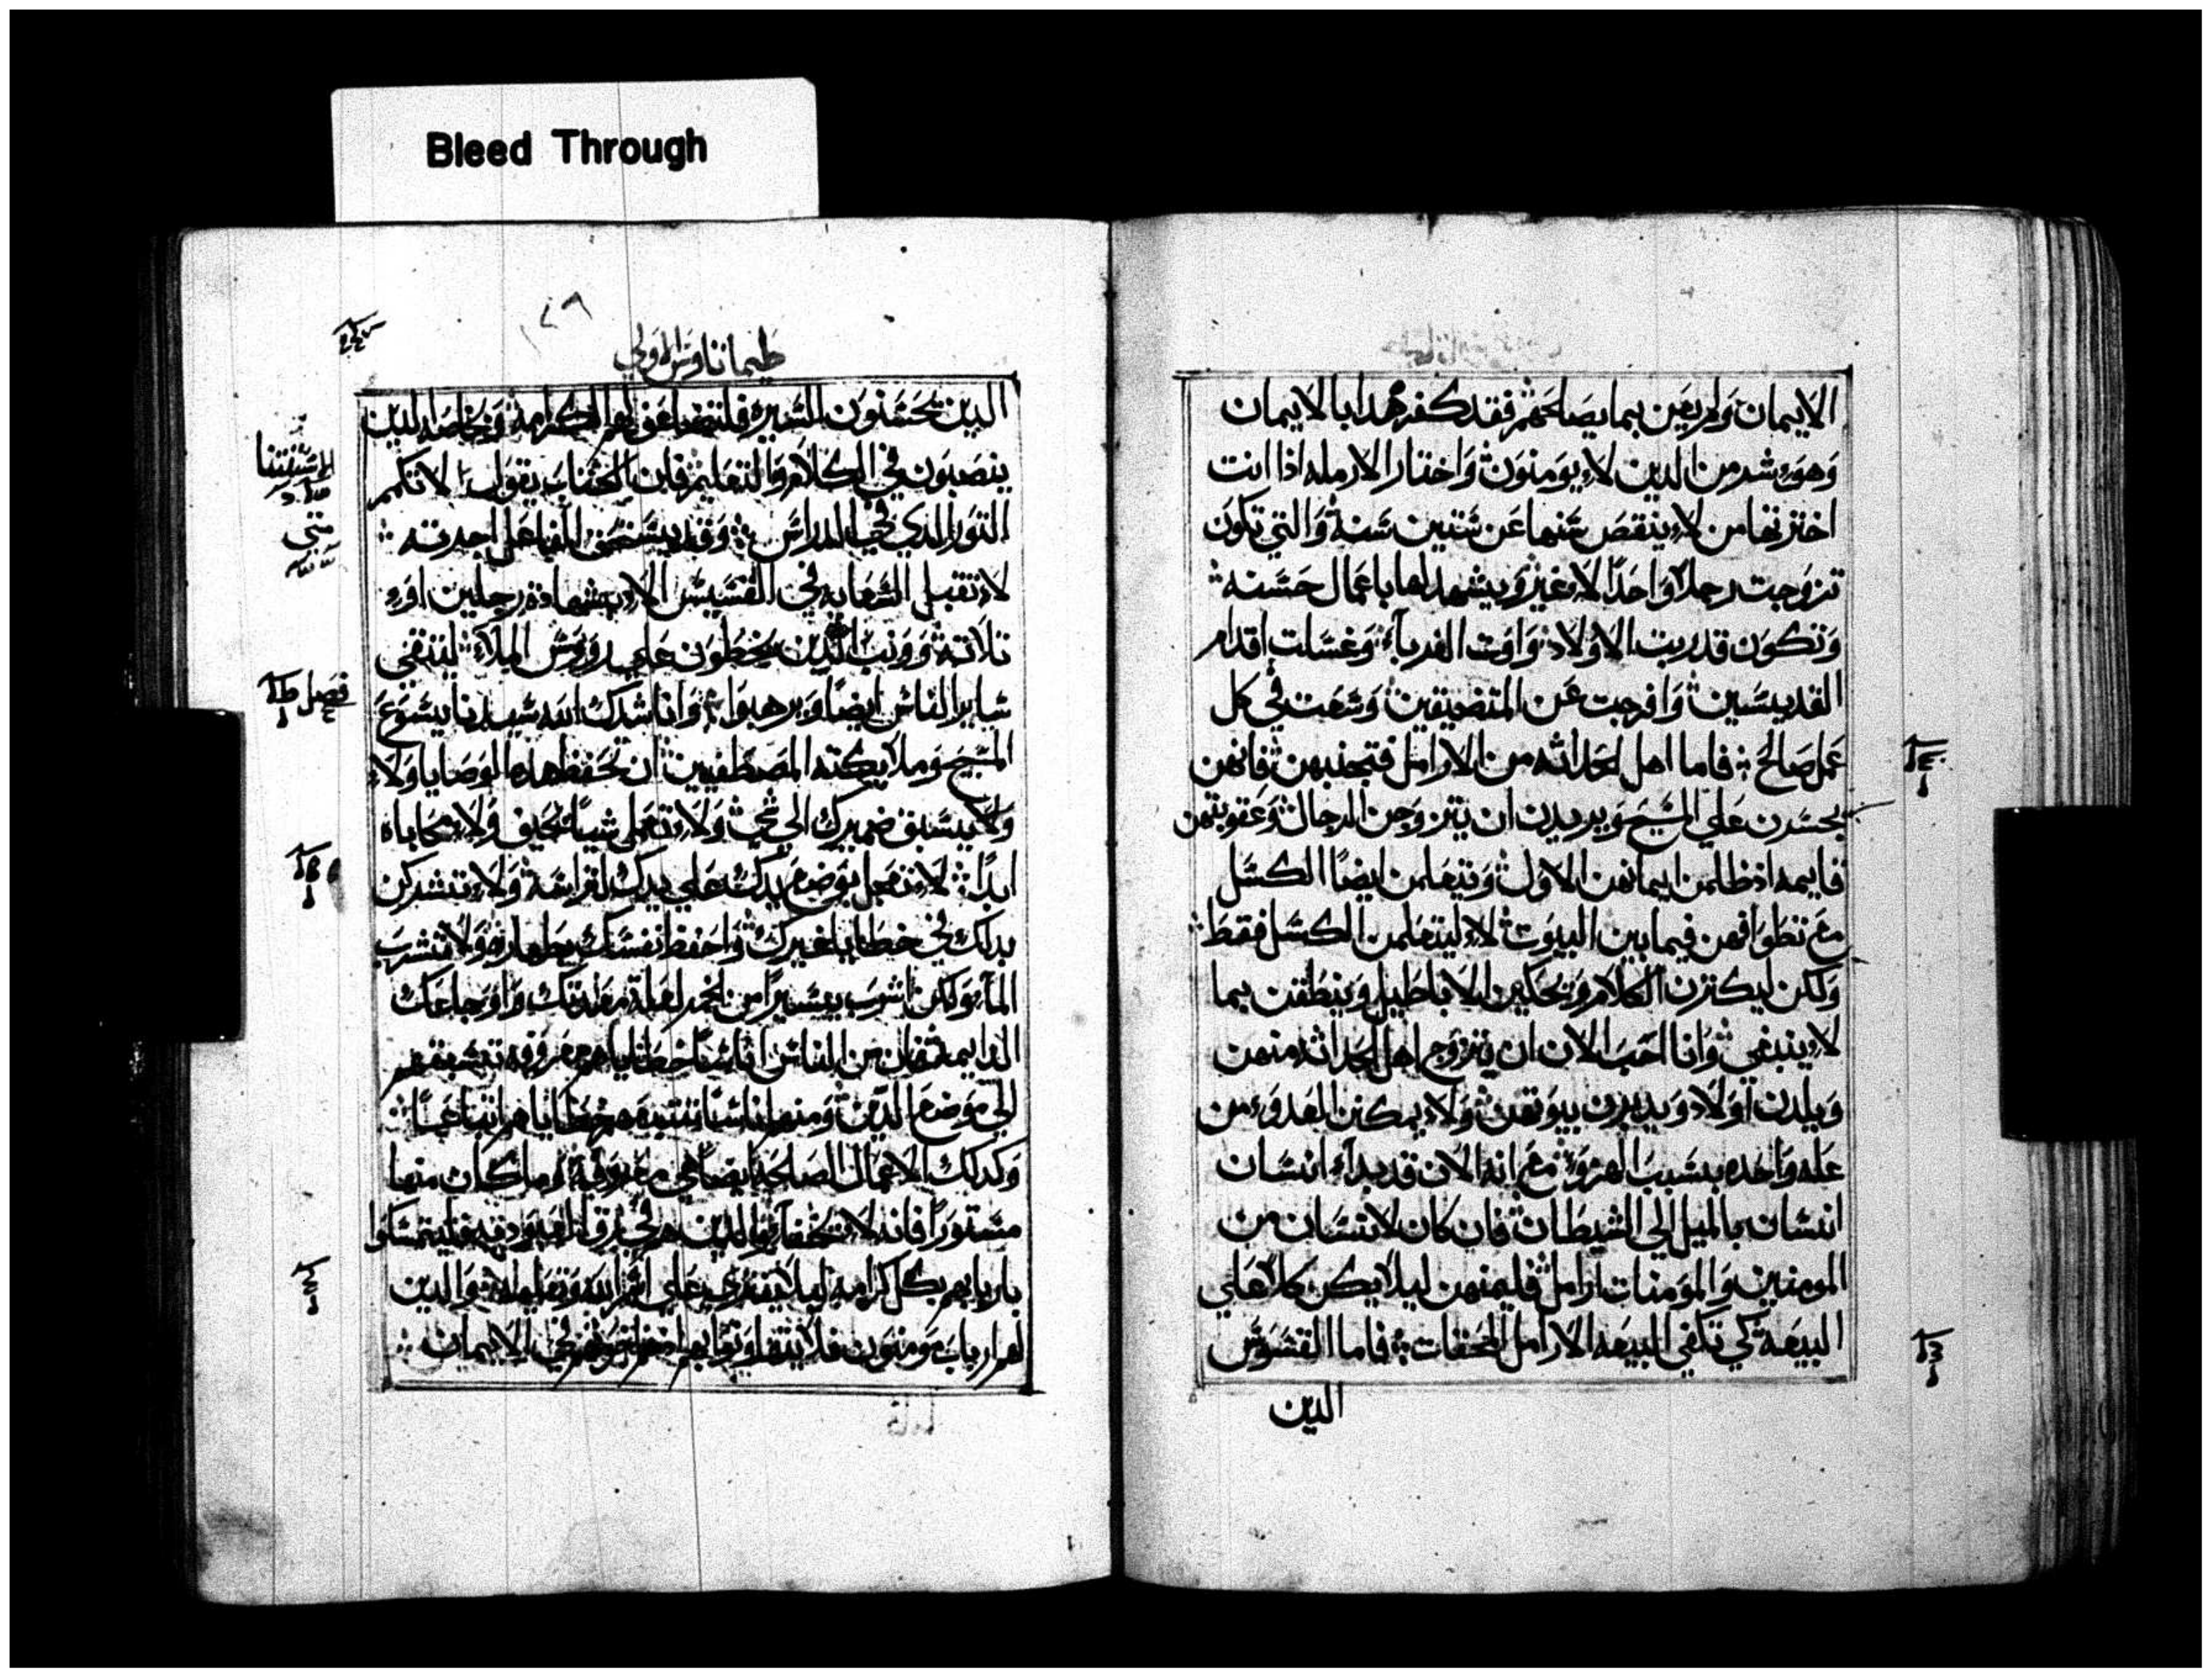 Bleed Through
الايمان ولم يعين بما يصلحهم فقد كفر هدا بالايمان
وهو شر من الدين لا يومنون واختار الارمله اذا انت
اخترتها من لا ينقص سنها عن ستين سنة والتي تكون
تزوجت رجلا واحدا لا غير ويشهد لها باعمال حسنه
وتكون قد ربت الاولاد واوت الغربآء وغسلت اقدام
القديسين وافرجت عن المتضيقين وسعت في كل
عمل صالح فاما اهل الحداثه من الارامل فتجنبهن فانهن
يجسرن علي المسيح ويريدن ان يتزوجن الرجال وعقوبتهن
قايمه اذ ظلمن ايمانهن الاول ويتعلمن ايضا الكسل
مع تطوافهن فيما بين البيوت لا ليتعلمن الكسل فقط
ولكن ليكترن الكلام ويحكين الاباطيل وينطقن بما
لا ينبغي وانا احب الان ان يتزوج اهل الحداثه منهن
ويلدن اولاد ويدبرن بيوتهن ولا يمكنن العدو من
عله واحده بسبب الهزو مع انه الان قد بدآء انسان
انسان بالميل الي الشيطان فان كان لانسان من
المومنين والمومنات ارامل فليمنهن ليلا يكن كلا علي
البيعة كي تكفي البيعه الارامل المحقات فاما القسوس
الدين
طيماتاوس الاولي
الدين يحسنون السيره فلتضاعف لهم الكرامة وبخاصه الدين
ينصبون في الكلام والتعليم فان الكتاب يقول لا تكمم
التور الذي في الدراس وقد يستحق الفاعل اجرته
لا تقبل السعايه في القسيس الا بشهادة رجلين او
تلاته وونب الدين يخطون علي رووس الملآء ليتقي
ساير الناس ايضا ويرهبوا وانا ناشدك الله سيدنا يسوع
المسيح وملايكته المصطفيين ان تحفظ هده الوصايا ولا
ولا يسبق ضميرك الي شي ولا تعمل شيا بحيف ولا محاباه
ابدا لا تعجل بوضع يدك علي
بدلك في خطايا غيرك واحفظ نفسك بطهاره ولا تشرب
المآء ولكن اشرب يسيرا من الخمر لعلة معدتك واوجاعك
الدايمه فان من الناس اناسا خطاياهم معروفه تسبقهم
الي موضع الدين ومنهم اناسا تتبعهم خطاياهم اتباعا
وكدلك الاعمال الصالحه ايضا هي معروفه وما كان منها
مستورا فانه لا تخفآء والدين هم في رق العبوديه فليتمسكوا
باربابهم بكل كرامه ليلا يفتري علي اسم الله وتعليمه والدين
لهم ارباب مومنون فلا يتهاونوا بهم اذ هم اخوتهم في الايمان
متي
فصل